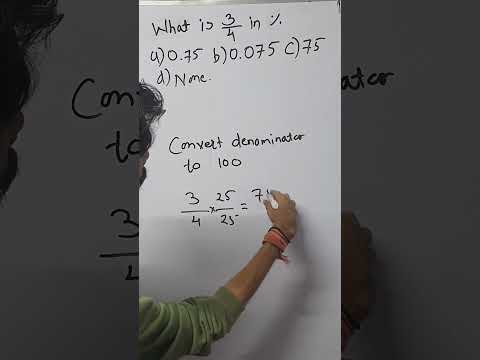 What is 3/4 in %
a) 0.75 b) 0.075 c) 75
d) None.
Convert denominator
to 100
3/4 × 25/25 = 7